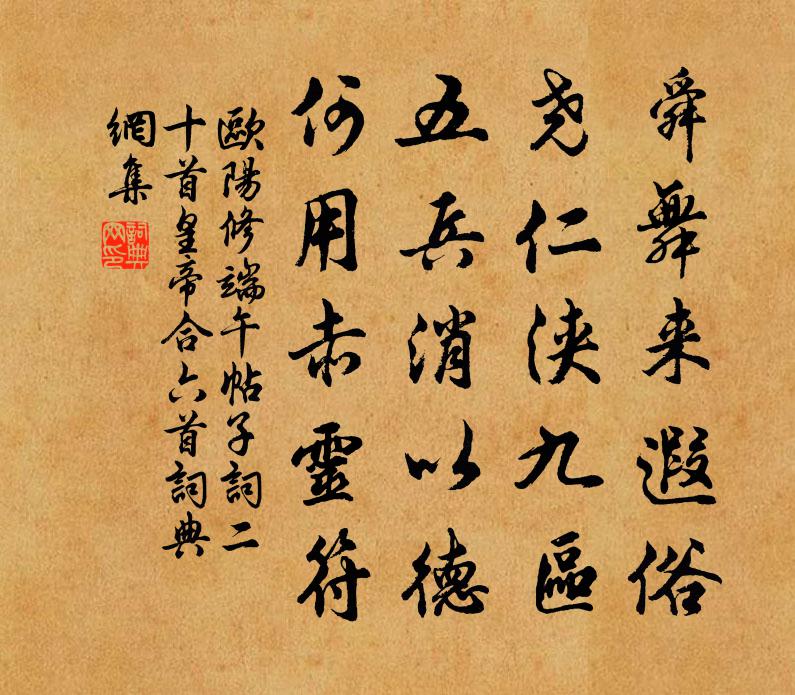 舜舞来遐俗
尧仁浹九區
五兵消以德
何用赤靈符
歐陽修端午帖子詞二
十首皇帝合六首詞典
網集
詞典網印